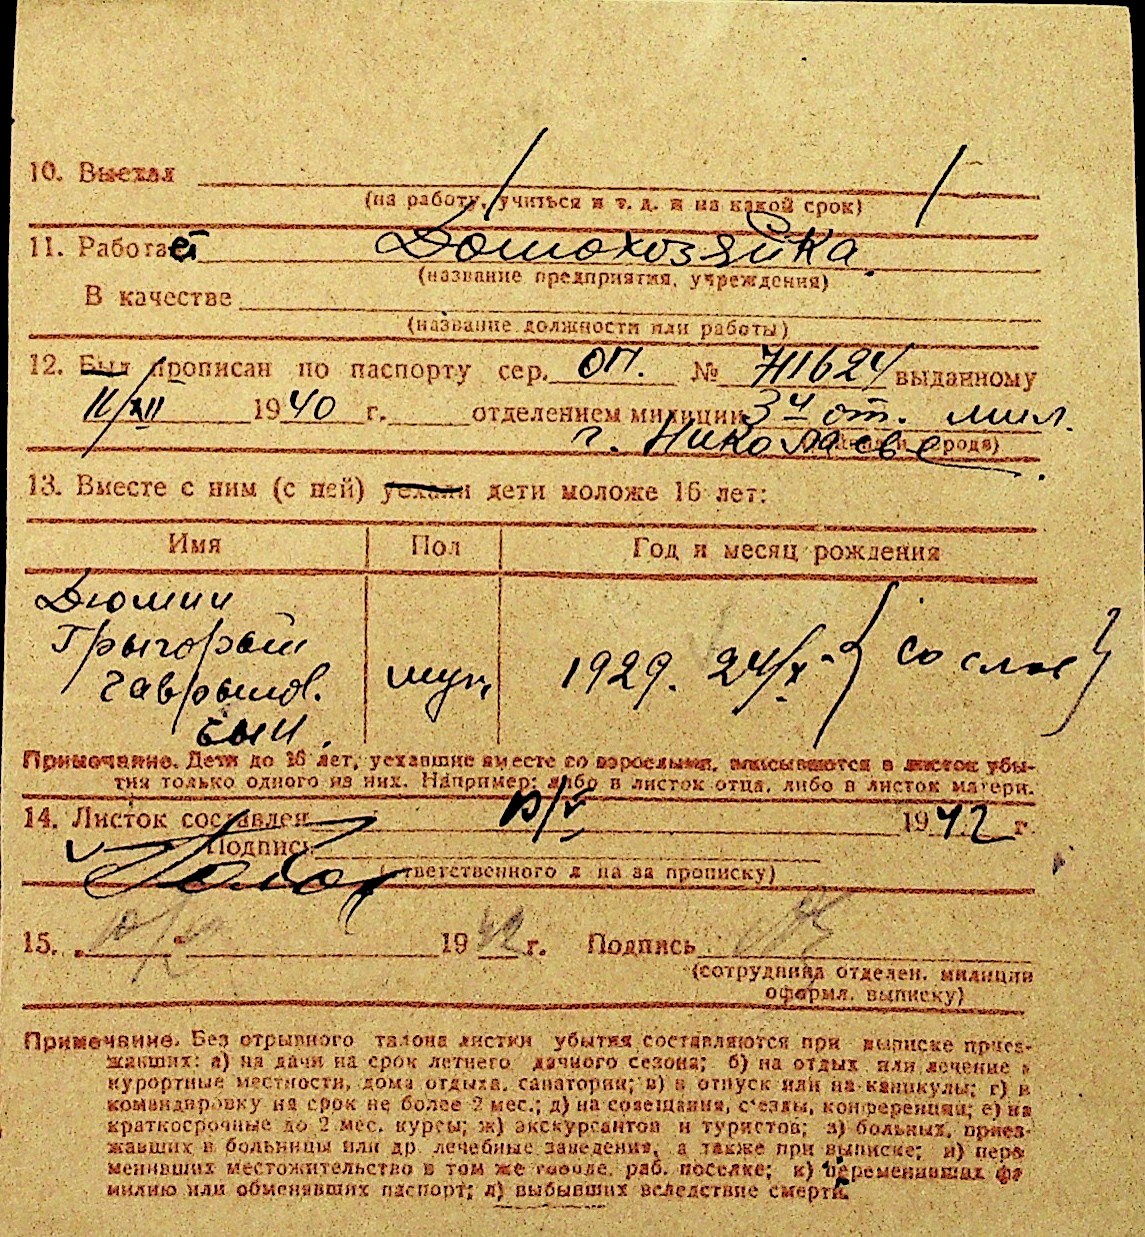 10. Выехал
(на работу, учиться и т. д. и на какой срок)
11. Работает Домохозяйка
(название предприятия, учреждения)
В качестве
(название должности или работы)
12. Был прописан по паспорту сер. ОП. № 711624 выданному
11/XII 1940 г. отделением милиции 3й от. мил.
г. Николаеве города)
13. Вместе с ним (с ней) уехали дети моложе 16 лет:
Имя Пол Год и месяц рождения
Дюмин
Грыгорый
Гаврылов. муж. 1929. 24/X - { со слов }
сын.
Примечание. Дети до 16 лет, уехавшие вместе со взрослыми, вписываются в листок убы-
тия только одного из них. Например: либо в листок отца, либо в листок матери.
14. Листок составлен 10/V 1942 г.
Подпись
ответственного л на за прописку)
15. 1942 г. Подпись
(сотрудника отделен. милиции
оформл. выписку)
Примечание. Без отрывного талона листки убытия составляются при выписке приез-
жавших: а) на дачи на срок летнего дачного сезона; б) на отдых или лечение в
курортные местности, дома отдыха, санатории; в) в отпуск или на каникулы; г) в
командировку на срок не более 2 мес.; д) на совещания, съезды, конференции; е) на
краткосрочные до 2 мес. курсы; ж) экскурсантов и туристов; з) больных, приез-
жавших в больницы или др. лечебные заведения, а также при выписке; и) пере
менивших местожительство в том же городе, раб. поселке; к) переменивших фа
милию или обменявших паспорт; л) выбывших вследствие смерти.